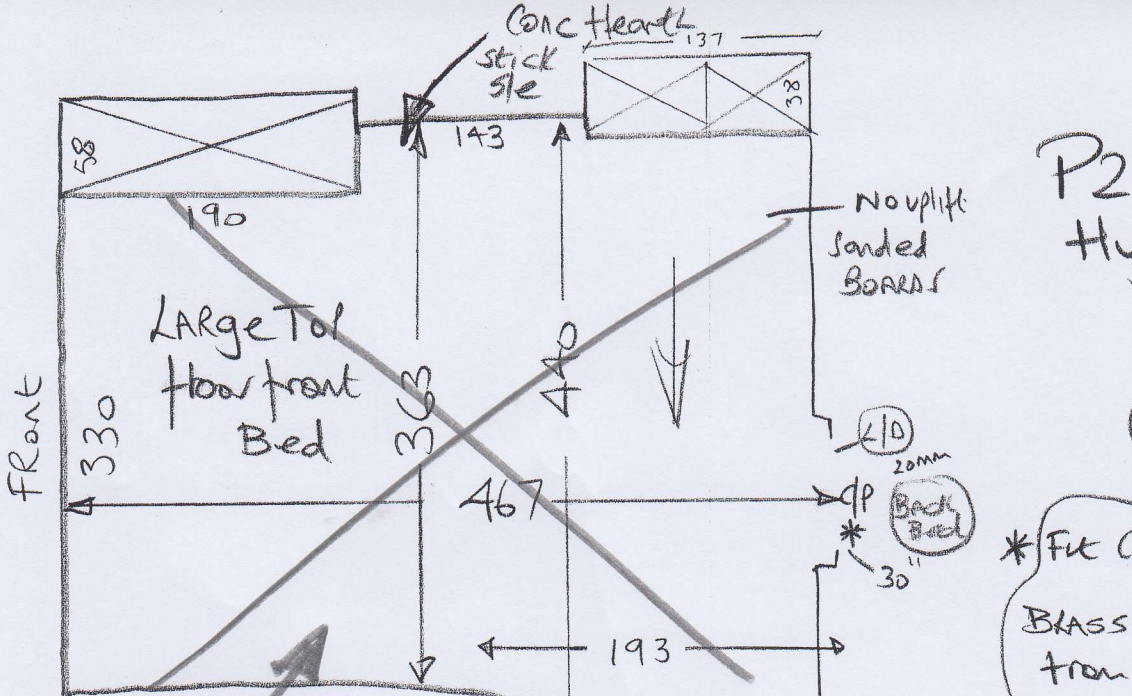 Conc Hearth
stick
s/e
137
38
58
143
190
No uplift
Sanded
BOARDS
P2
LARge Top
floor front
Bed
363
440
FRont
330
L/D
20mm
467
C/P
Back
Bed
*
30"
* Fit
BRASS
from
193